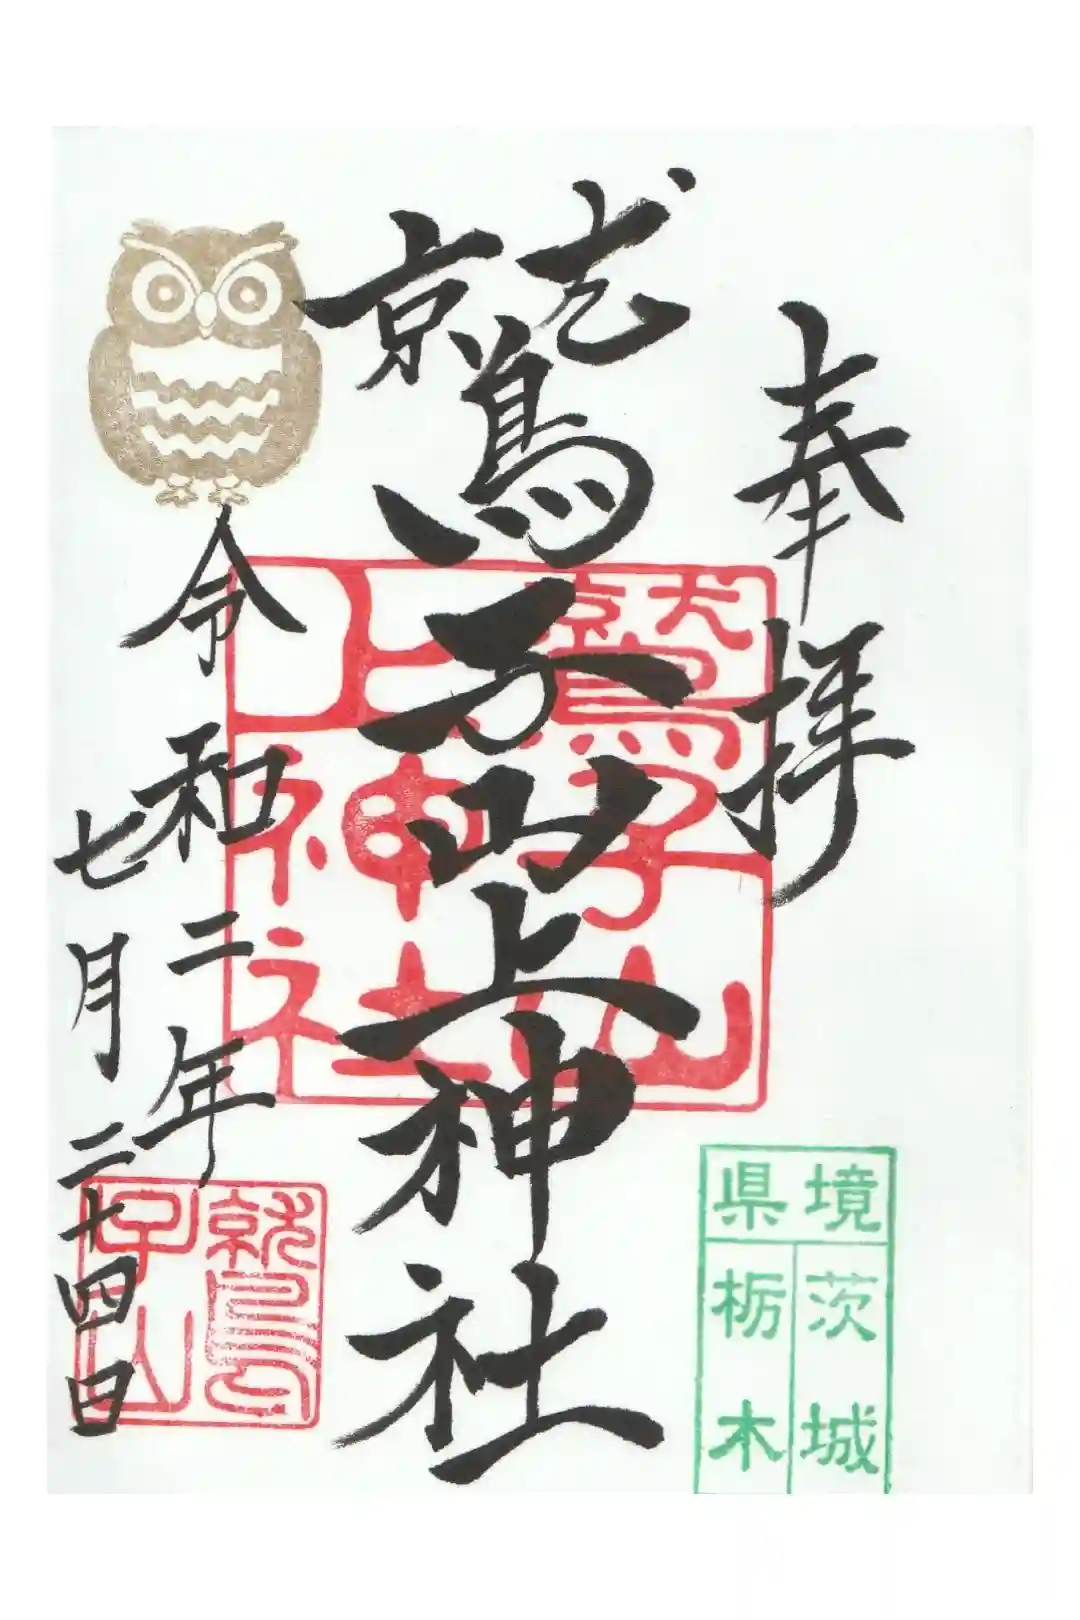 奉拝
鷲子山上神社
令和二年
七月二十四日
鷲子山
上神社
鷲子山
境
県
茨城
栃木